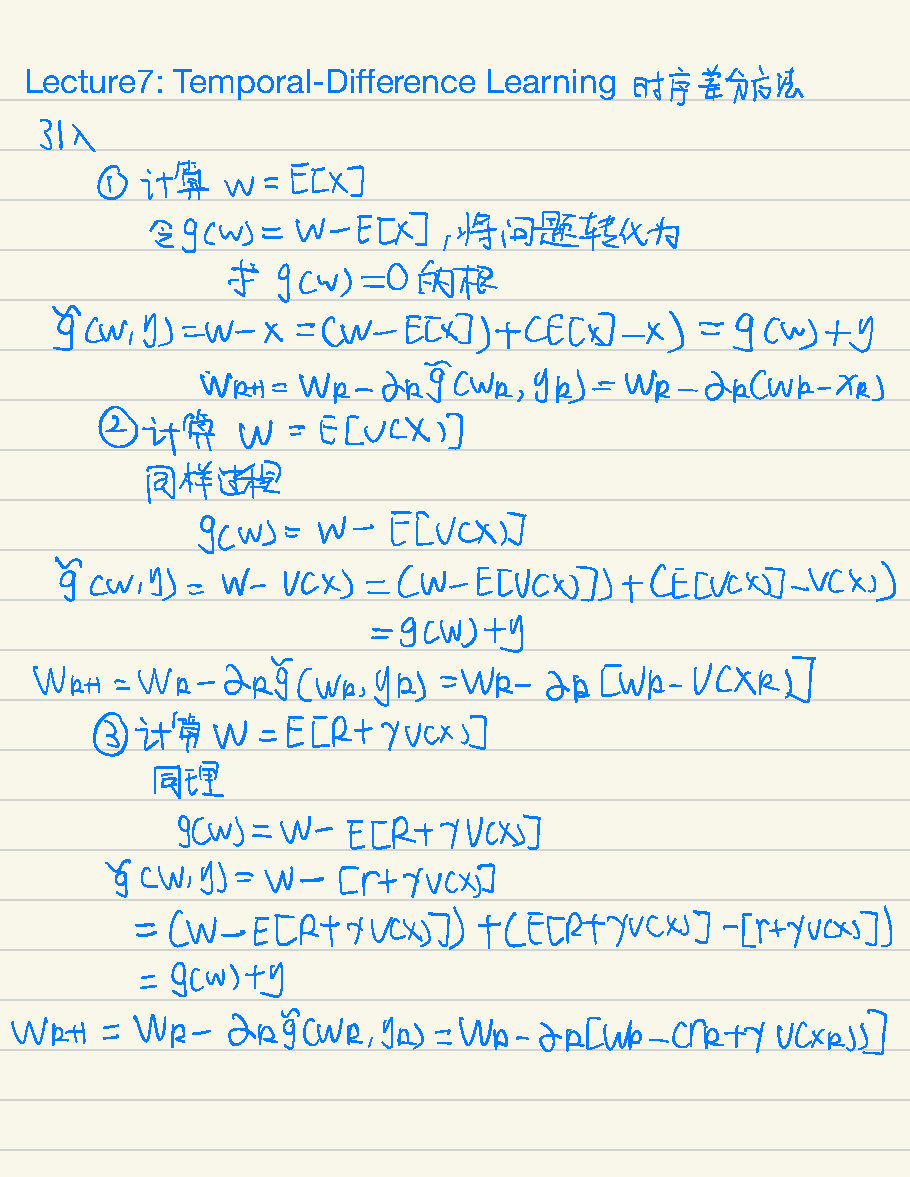 Lecture7: Temporal-Difference Learning 时序差分方法
引入
① 计算 w = E[X]
令g(w) = w - E[X], 将问题转化为
求 g(w) = 0 的根
g̃(w,η) = w - x = (w - E[x]) + (E[x] - x) = g(w) + η
w_{k+1} = w_k - α_k g̃(w_k, η_k) = w_k - α_k(w_k - x_k)
② 计算 w = E[v(X)]
同样过程
g(w) = w - E[v(X)]
g̃(w,η) = w - v(x) = (w - E[v(x)]) + (E[v(x)] - v(x))
= g(w) + η
w_{k+1} = w_k - α_k g̃(w_k, η_k) = w_k - α_k [w_k - v(x_k)]
③ 计算 w = E[R + γv(x)]
同理
g(w) = w - E[R + γv(x)]
g̃(w,η) = w - [r + γv(x)]
= (w - E[R + γv(x)]) + (E[R + γv(x)] - [r + γv(x)])
= g(w) + η
w_{k+1} = w_k - α_k g̃(w_k, η_k) = w_k - α_k[w_k - (r_k + γ v(x_k))]